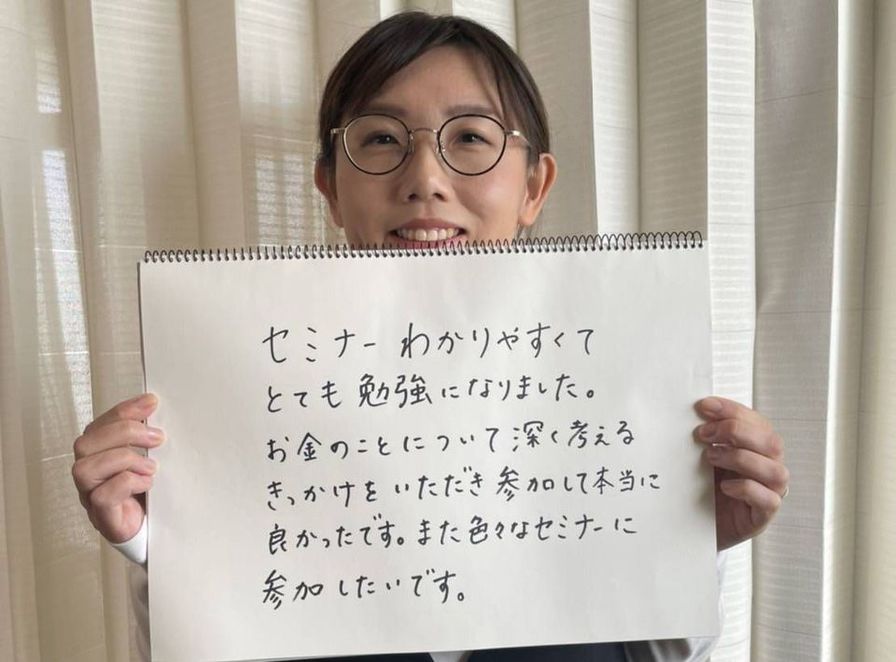 セミナーわかりやすくて
とても勉強になりました。
お金のことについて深く考える
きっかけをいただき参加して本当に
良かったです。また色々なセミナーに
参加したいです。